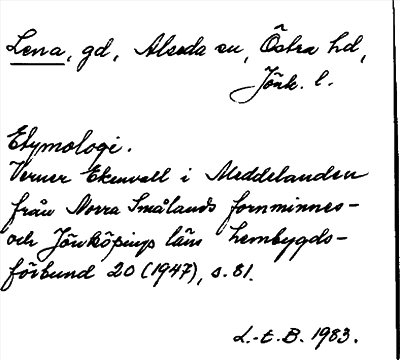 Lena, gd, Alseda sn, Östra hd,
Jönk. l.
Etymologi.
Verner Ekenvall i Meddelanden
från Norra Smålands fornminnes-
och Jönköpings läns hembygds-
förbund 20 (1947), s. 81.
L.-E. B. 1983.